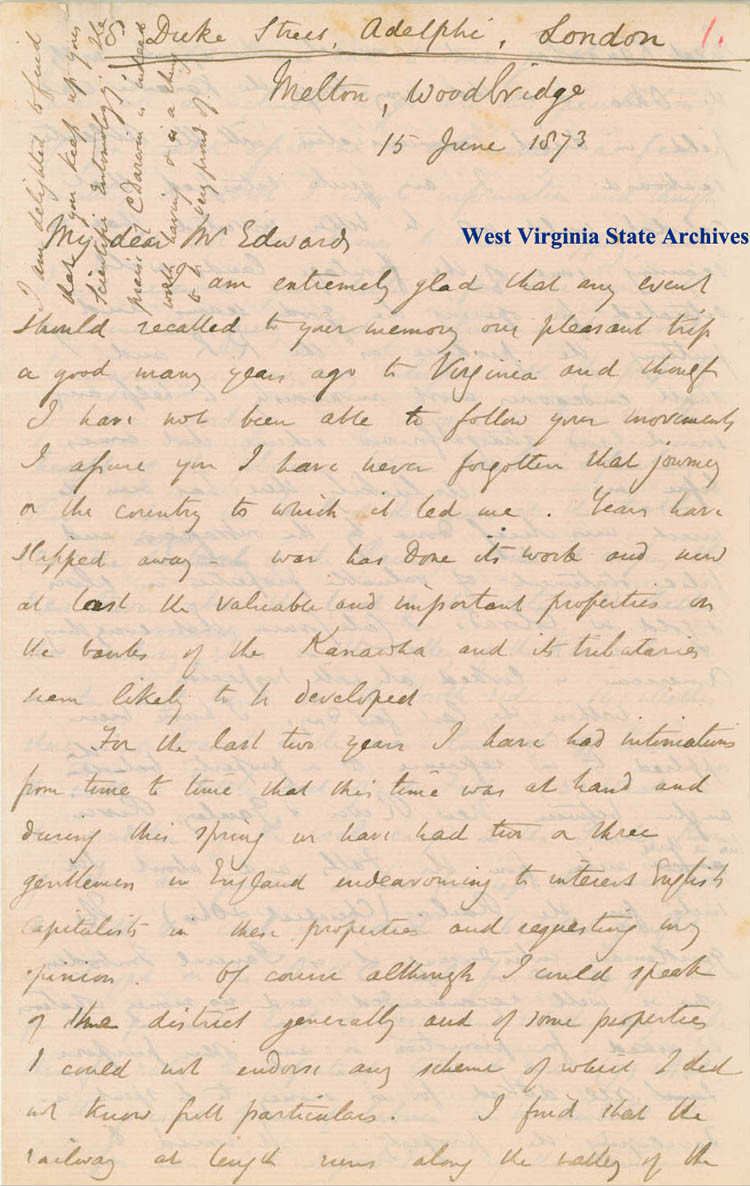 8 Duke Street, Adelphi, London 1.
Melton, Woodbridge
15 June 1873
West Virginia State Archives
My dear Mr Edwards
I am extremely glad that any event
should recalled to your memory our pleasant trip
a good many years ago to Virginia and though
I have not been able to follow your movements
I assure you I have never forgotten that journey
or the country to which it led me. Years have
slipped away – war has done its work and now
at last the valuable and important properties on
the banks of the Kanawha and its tributaries
seem likely to be developed
For the last two years I have had intimations
from time to time that this time was at hand and
during this spring we have had two or three
gentlemen in England endeavouring to interest English
capitalists in these properties and requesting my
opinion. Of course although I could speak
of the district generally and of some properties
I could not endorse any scheme of which I did
not know full particulars. I find that the
railway at length runs along the valley of the
I am delighted to find
that you keep up your
scientific entomology. The
praise of C Darwin is indeed
worth having & is a thing
to be very proud of.